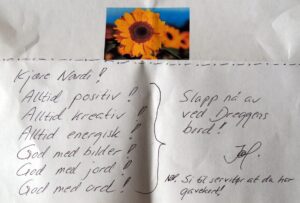 Kjære Nardi!
Alltid positiv!
Alltid kreativ!
Alltid energisk!
God med bilder!
God med jord!
God med ord!
Slapp nå av
ved Dreggens
bord!
NB. Si til servitør at du har
gavekort!